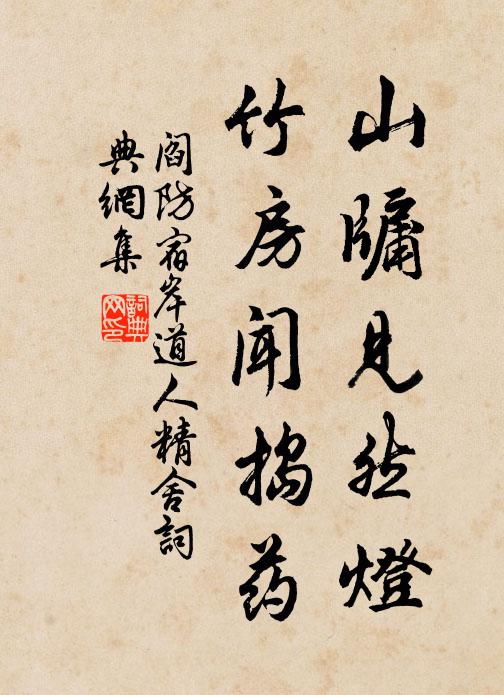 山牖見然燈
竹房闻搗药
阎防宿岸道人精舍詞
典網集
詞典網印